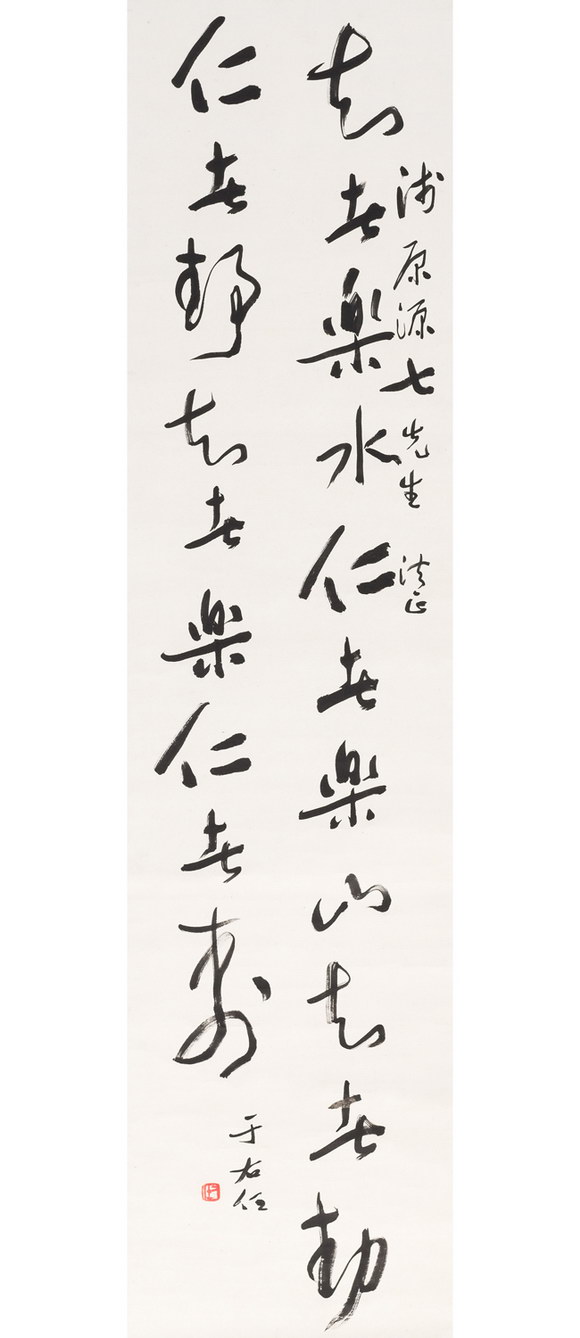 知者樂水仁者樂山知者動
浦原源七先生 法正
仁者靜知者樂仁者壽
于右任